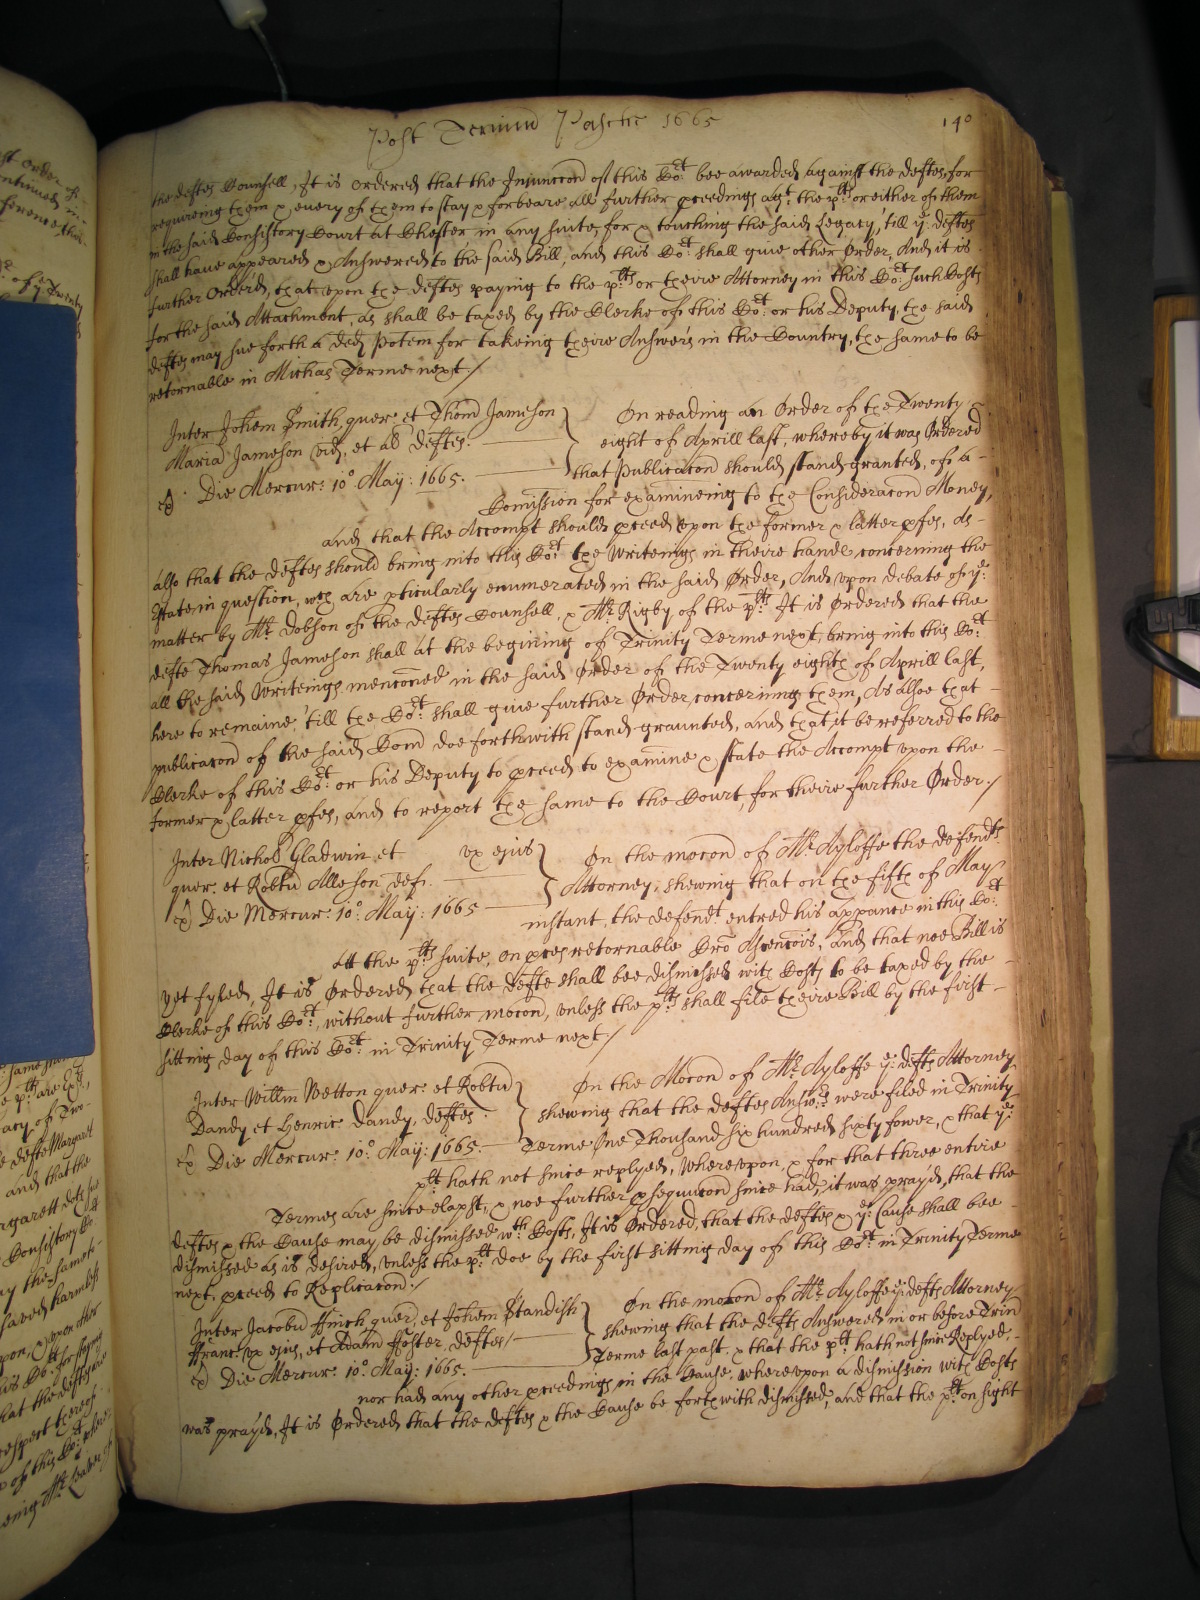 Post Terminū Pasche 1665
140
the deftes Counsell, It is ordered that the Injuncc̄on of this Co:rt bee awarded against the deftes, for
requireing them & every of them to stay & forbeare all further p̱ceedings agt. the pltt or either of them
in the said Consistory Court at Chester in any suite, for & touching the said Legacy, till ye: deftes
shall have appeared & Answered to the said Bill, and this Co:rt shall give other Order, And it is
further Orderd, that upon the deftes paying to the pltts or theire Attorney in this Co:rt such Costs
for the said Attachment, as shall be taxed by the Clerke of this Co:rt or his Deputy, the said
deftes may sue forth a ded: potem for takeing theire Answers in the Country, the same to be
retornable in Michas Terme next /
Inter Johem Smith, quer: et Thom̄ Jameson
Maria Jameson vid, et al̄ deftes.
Ex̱ Die Mercur: 10o May: 1665.
On reading an Order of the Twenty
eight of Aprill last, whereby it was Ordered
that Publicac̄on should stand granted, of a
Com̄ission for examineing to the Considerac̄on Money,
and that the Accompt should p̱ceed upon the former & latter p̱fes, As
also that the deftes should bring into this Co:rt the Writeings in theire hande concerning the
Estate in question, wch are p̱ticularly enumerated in the said Order, And upon debate of ye:
matter by Mr. Dobson of the deftes Counsell, & Mr. Rigby of the pltts It is Ordered that the
defte Thomas Jameson shall at the begining of Trinity Terme next, bring into this Co:rt
all the said Writeings menc̄oned in the said Order of the Twenty eighth of Aprill last,
here to remaine, till the Co:rt shall give further Order, concerning them, As allsoe that
publicac̄on of the said Com̄ doe forthwith stand graunted, and that it be referred to the
Clerke of this Co:rt or his Deputy to p̱ceed to examine & state the Accompt upon the
former & latter p̱fes, and to report the same to the Court, for theire further Order /
Inter Nichol̄ Gladwin et ux ejus
quer: et Robtū Alleson def.
Ex̱ Die Mercur: 10o: May: 1665
On the moc̄on of Mr. Ayloffe the defendts
Attorney, shewing that on the fifth of May
instant, the defendt: entred his app̱ance in this Co:rt
att the pltts suite, on p̱ces retornable Cro Ascenc̄ois, And that noe Bill is
yet fyled, It is Ordered that the defte shall bee dismissed with Costs to be taxed by the
Clerke of this Co:rt, without further moc̄on, unless the pltts shall file theire Bill by the first
sitting day of this Co:rt in Trinity Terme next /
Inter Willm̄ Wetton quer: et Robtū
Dandy et Henric̄ Dandy, deftes
Ex̱ Die Mercur: 10o: May: 1665.
On the Moc̄on of Mr. Ayloffe ye: defts Attorney
shewing that the deftes Answrs were filed in Trinity
Terme One Thousand six hundred sixty fower, & that ye:
pltt hath not since replyed, Whereupon, & for that three entire
Termes are since elapst, & noe further p̱secuc̄on since had, it was prayd, that the
deftes & the Cause may be dismissed wth. Costs, It is Ordered, that the deftes & ye: Cause shall bee
dismissed as is desired, unless the pltt: doe by the first sitting day of this Co:rt in Trinity Terme
next, p̱ceed to Replicac̄on. /
Inter Jacobū Ffinch, quer, et Johem Standish
Ffranc: ux ejus, et Adam̄ Ffoster, deftes /
Ex̱ Die Mercur: 10o May: 1665.
On the moc̄on of Mr. Ayloffe ye: defts Attorney
shewing that the defts Answered in or before Trin
Terme last past, & that the pltt hath not since Replyed,
nor had any other p̱ceedings in the Cause, whereupon a dismission with Costs
was prayd, It is Ordered that the deftes & the Cause be forthwith dismissed, and that the pltt on sight